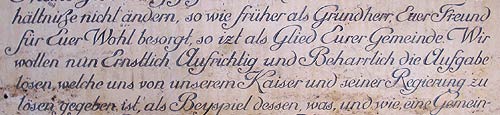 hältniße nicht ändern, so wie früher als Grundherr, Euer Freund
für Euer Wohl besorgt, so izt als Glied Eurer Gemeinde. Wir
wollen nun Ernstlich Aufrichtig und Beharrlich die Aufgabe
lösen, welche uns von unserem Kaiser und seiner Regierung zu
lösen gegeben ist, als Beyspiel dessen, was, und wie, eine Gemein-